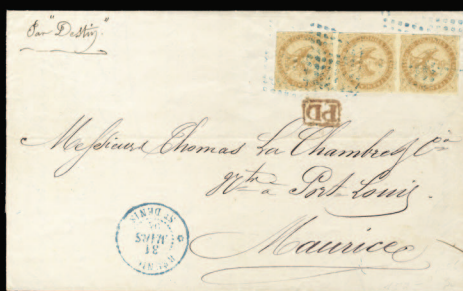 Par "Destin"
PD
Messieurs Thomas La Chambre & Cie
à Port Louis
Maurice
31
MARS
ST DENIS